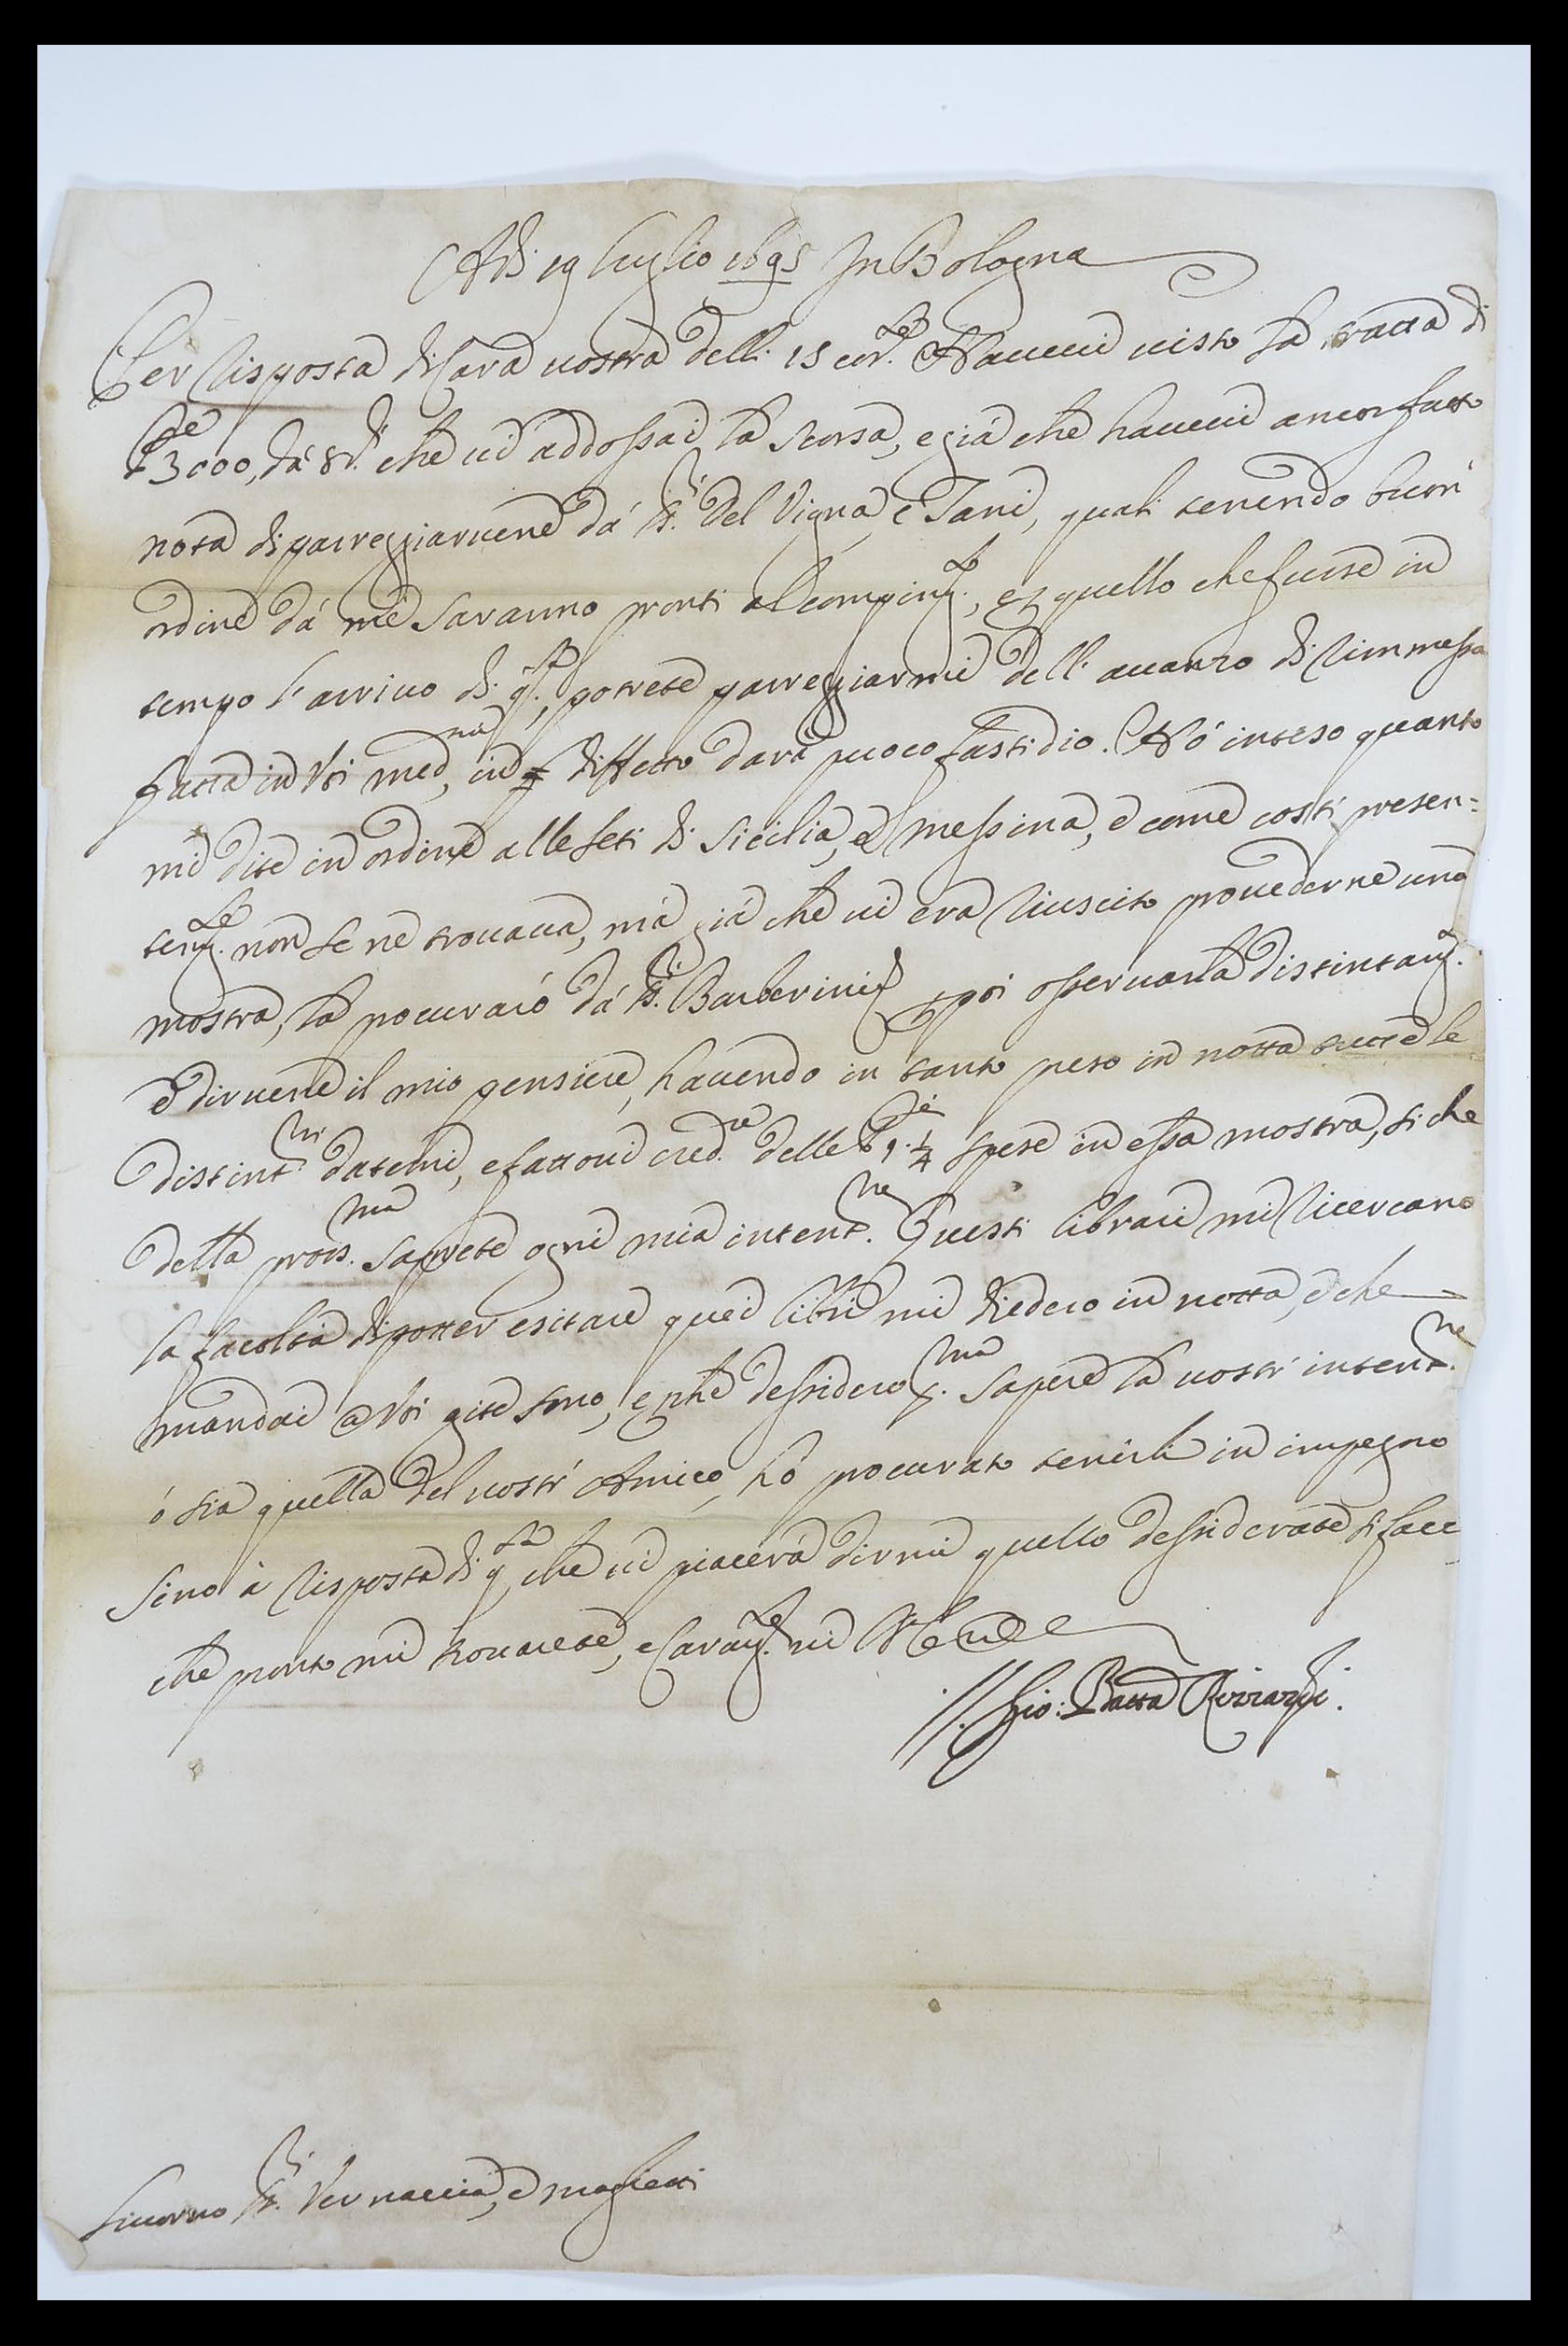 Adi 19 luglio 1695 In Bologna
Per risposta di Cara vostra delli 15 cor.te Havervi visto la tratta di
3000, da 8 r.li che vi addossai la scorsa, e già che havevi ancor fatto
nota di parreggiarvene dà SS.ri Del Vigna, e Tani, quali tenendo buon
ordine dà me saranno pronti al compim.to, e quello che fusse in
tempo l'arrivo di q.ta, potrete parreggiarmi dell'avanzo di rimmessa
fatta in Voi med.ma, in diffetto darà puoco fastidio. Hò inteso quanto
mi dite in ordine alle seti di Sicilia, e Messina, e come costì presen=
tem.te non se ne trovava, mà già che vi era riuscito provederne una
mostra, la procurarò dà SS.ri Barberini poi osservarla distintam.te
e dirvene il mio pensiere, havendo in tanto preso in notta tutte le
distint.ni datemi, e fattovi cred.re delle 9.1/4 spese in essa mostra, si che
della pros.ma saprete ogni mia intent.ne Questi librari mi ricercano
la facoltà di potter esitare quei libri mi diedero in notta, e che
mandai @ Voi gite sono, e perche dessidero p.ma sapere la vostr' intent.ne
ò sia quella del vostr' Amico, hò procurato tenerli in impegno
sino à risposta di q.ta che vi piacerà dirmi quello dessiderate si facc.
che pronto mi trovarete, e Caram.te vi
Gio: Batta Rizzardi.
Livorno SS.ri Vernaccia, e Maglietti